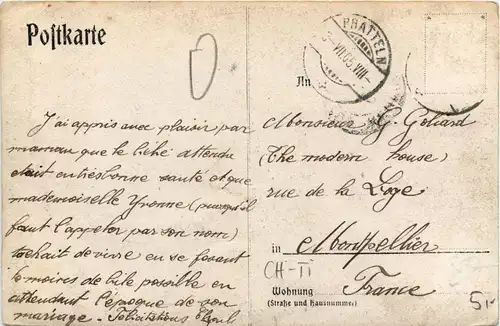 Postkarte
PRATTELN
VII.05.VIII
An
J'ai appris avec plaisir par
maman que le bébé attendu
était en très bonne santé et que
mademoiselle Yvonne (puisqu'il
faut l'appeler par son nom)
tachait de vivre en se faisant
le moins de bile possible en
attendant l'époque de son
mariage. Félicitations
Monsieur G.
(The modern house)
rue de la Loge
in Montpellier
CH-II
Wohnung France
(Straße und Hausnummer)